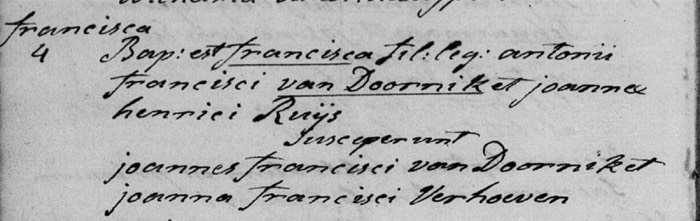 francisca
4 Bap: est francisca fil: leg: antonii
francisci van Doornik et joanna
henrici Ruijs
susceperunt
joannes francisci van Doornik et
joanna francisci Verhoeven